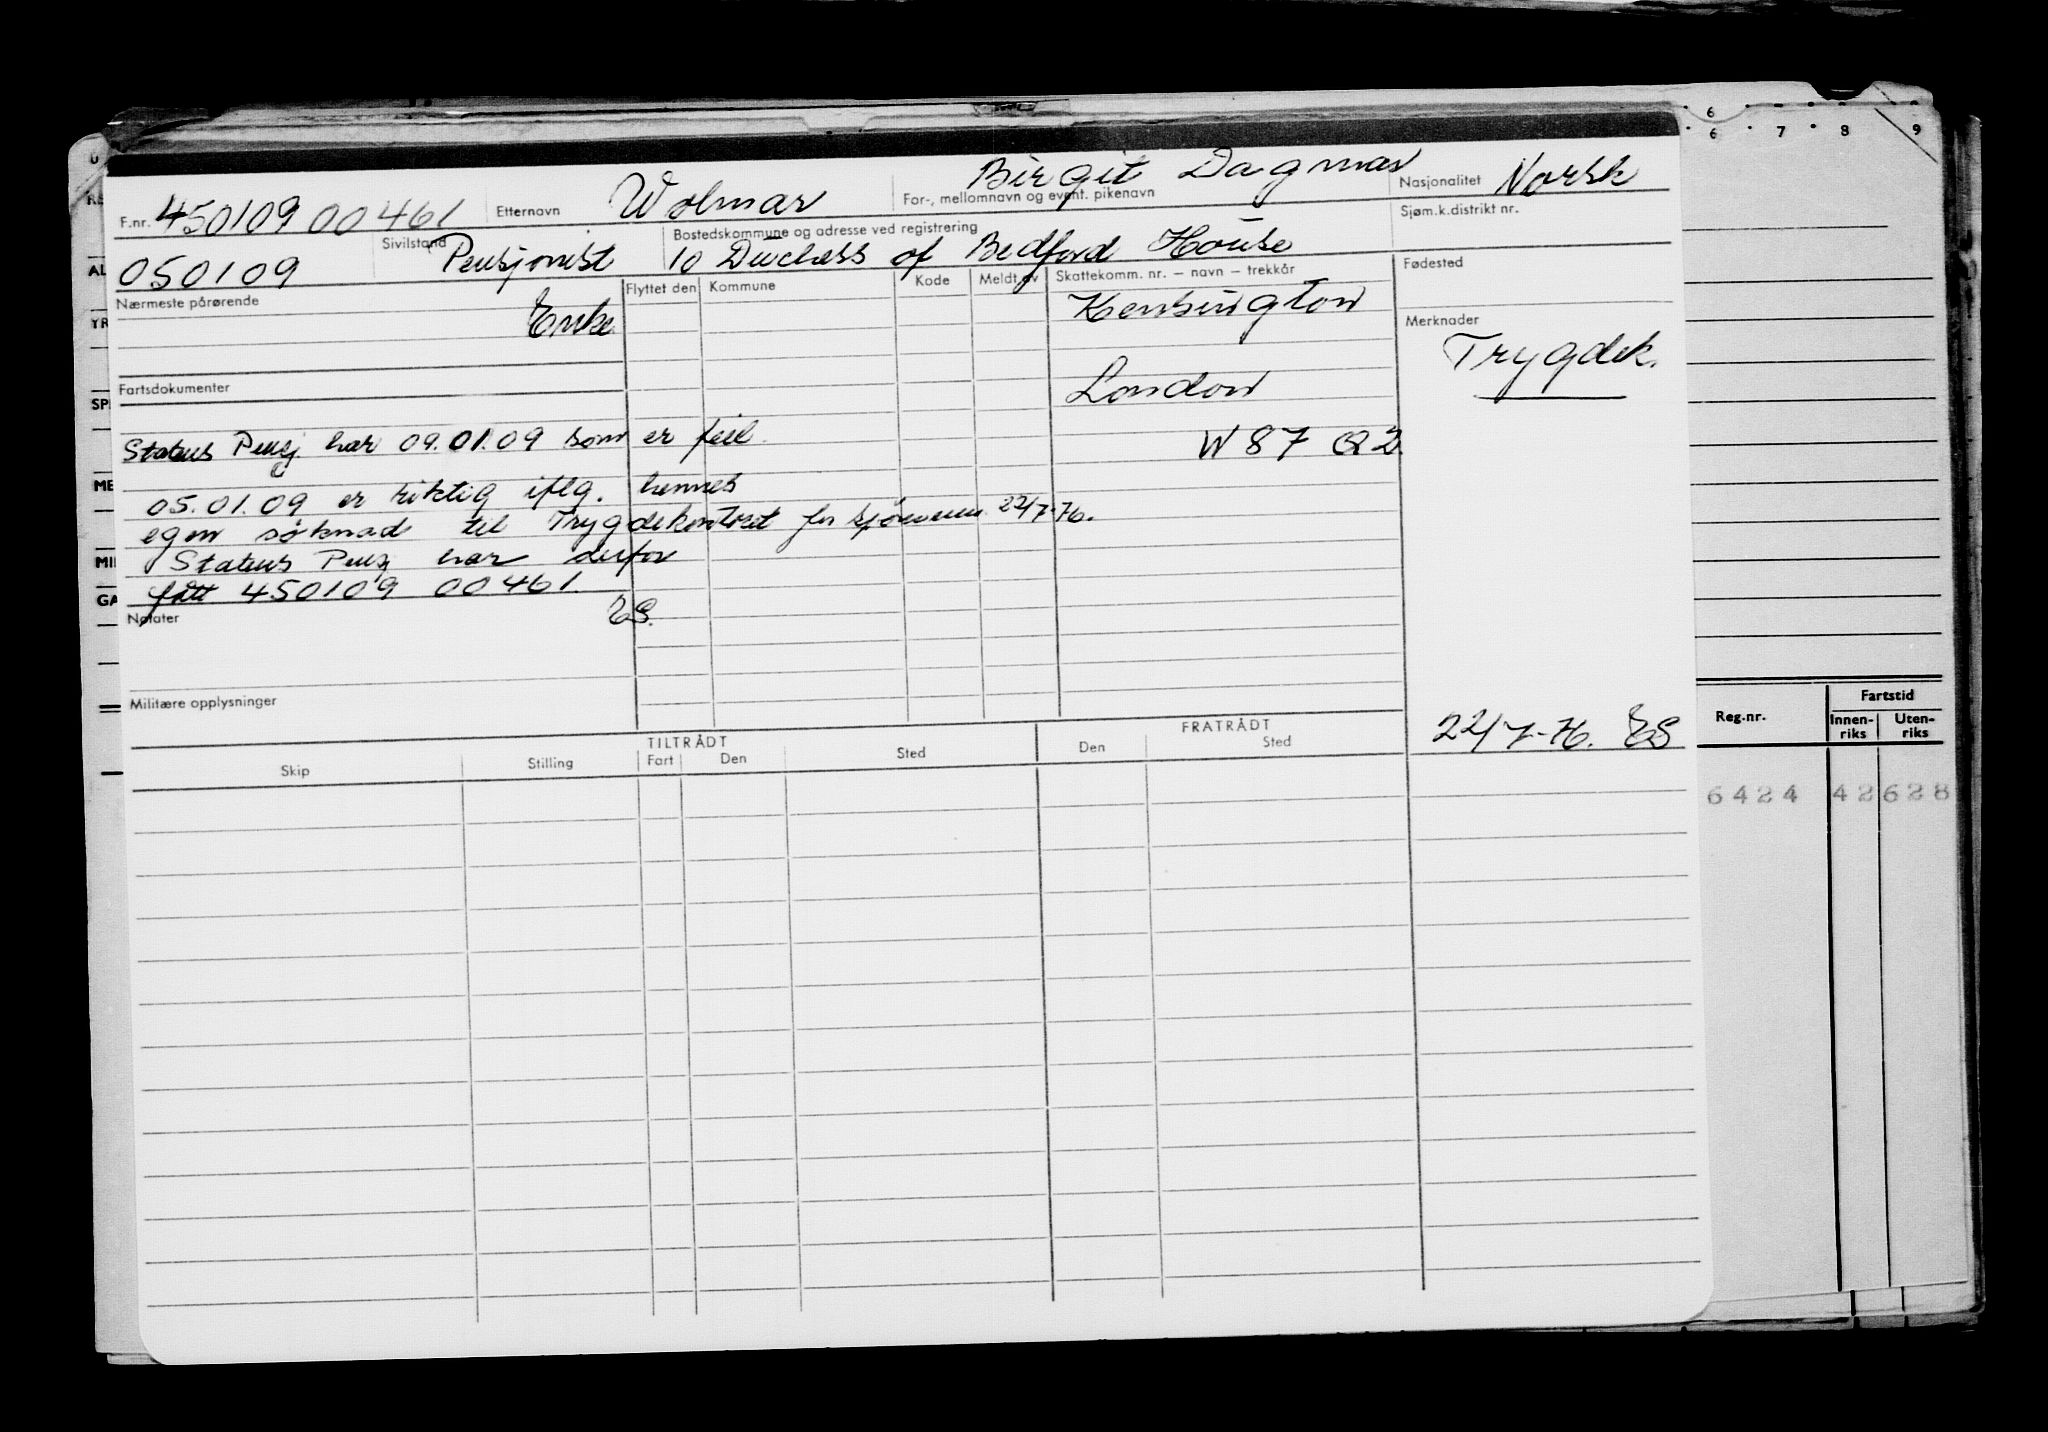 6
6 7 8 9
Birgit Dagmar
F.nr. 450109 00461 Etternavn Wolmar For-, mellomnavn og event. pikenavn Nasjonalitet Norsk
050109 Sivilstand Pensjonist Bostedskommune og adresse ved registrering Sjøm.k.distrikt nr.
10 Duchess of Bedford House
Nærmeste pårørende Flyttet den Kommune Kode Meldt av Skattekomm. nr. – navn – trekkår Fødested
Enke Kensington Merknader
Trygdek.
Fartsdokumenter London
Status Pensj. har 09.01.09 som er feil. W 87 Q2
05.01.09 er riktig iflg. hennes
egen søknad til Trygdekontoret for sjømenn 22/7-76.
Status Pensj har derfor
fått 450109 00461.
Notater ES.
Militære opplysninger
22/7-76. ES
TILTRÅDT FRATRÅDT
Skip Stilling Fart Den Sted Den Sted
Reg.nr. Fartstid
Innenriks Utenriks
6424 42 628